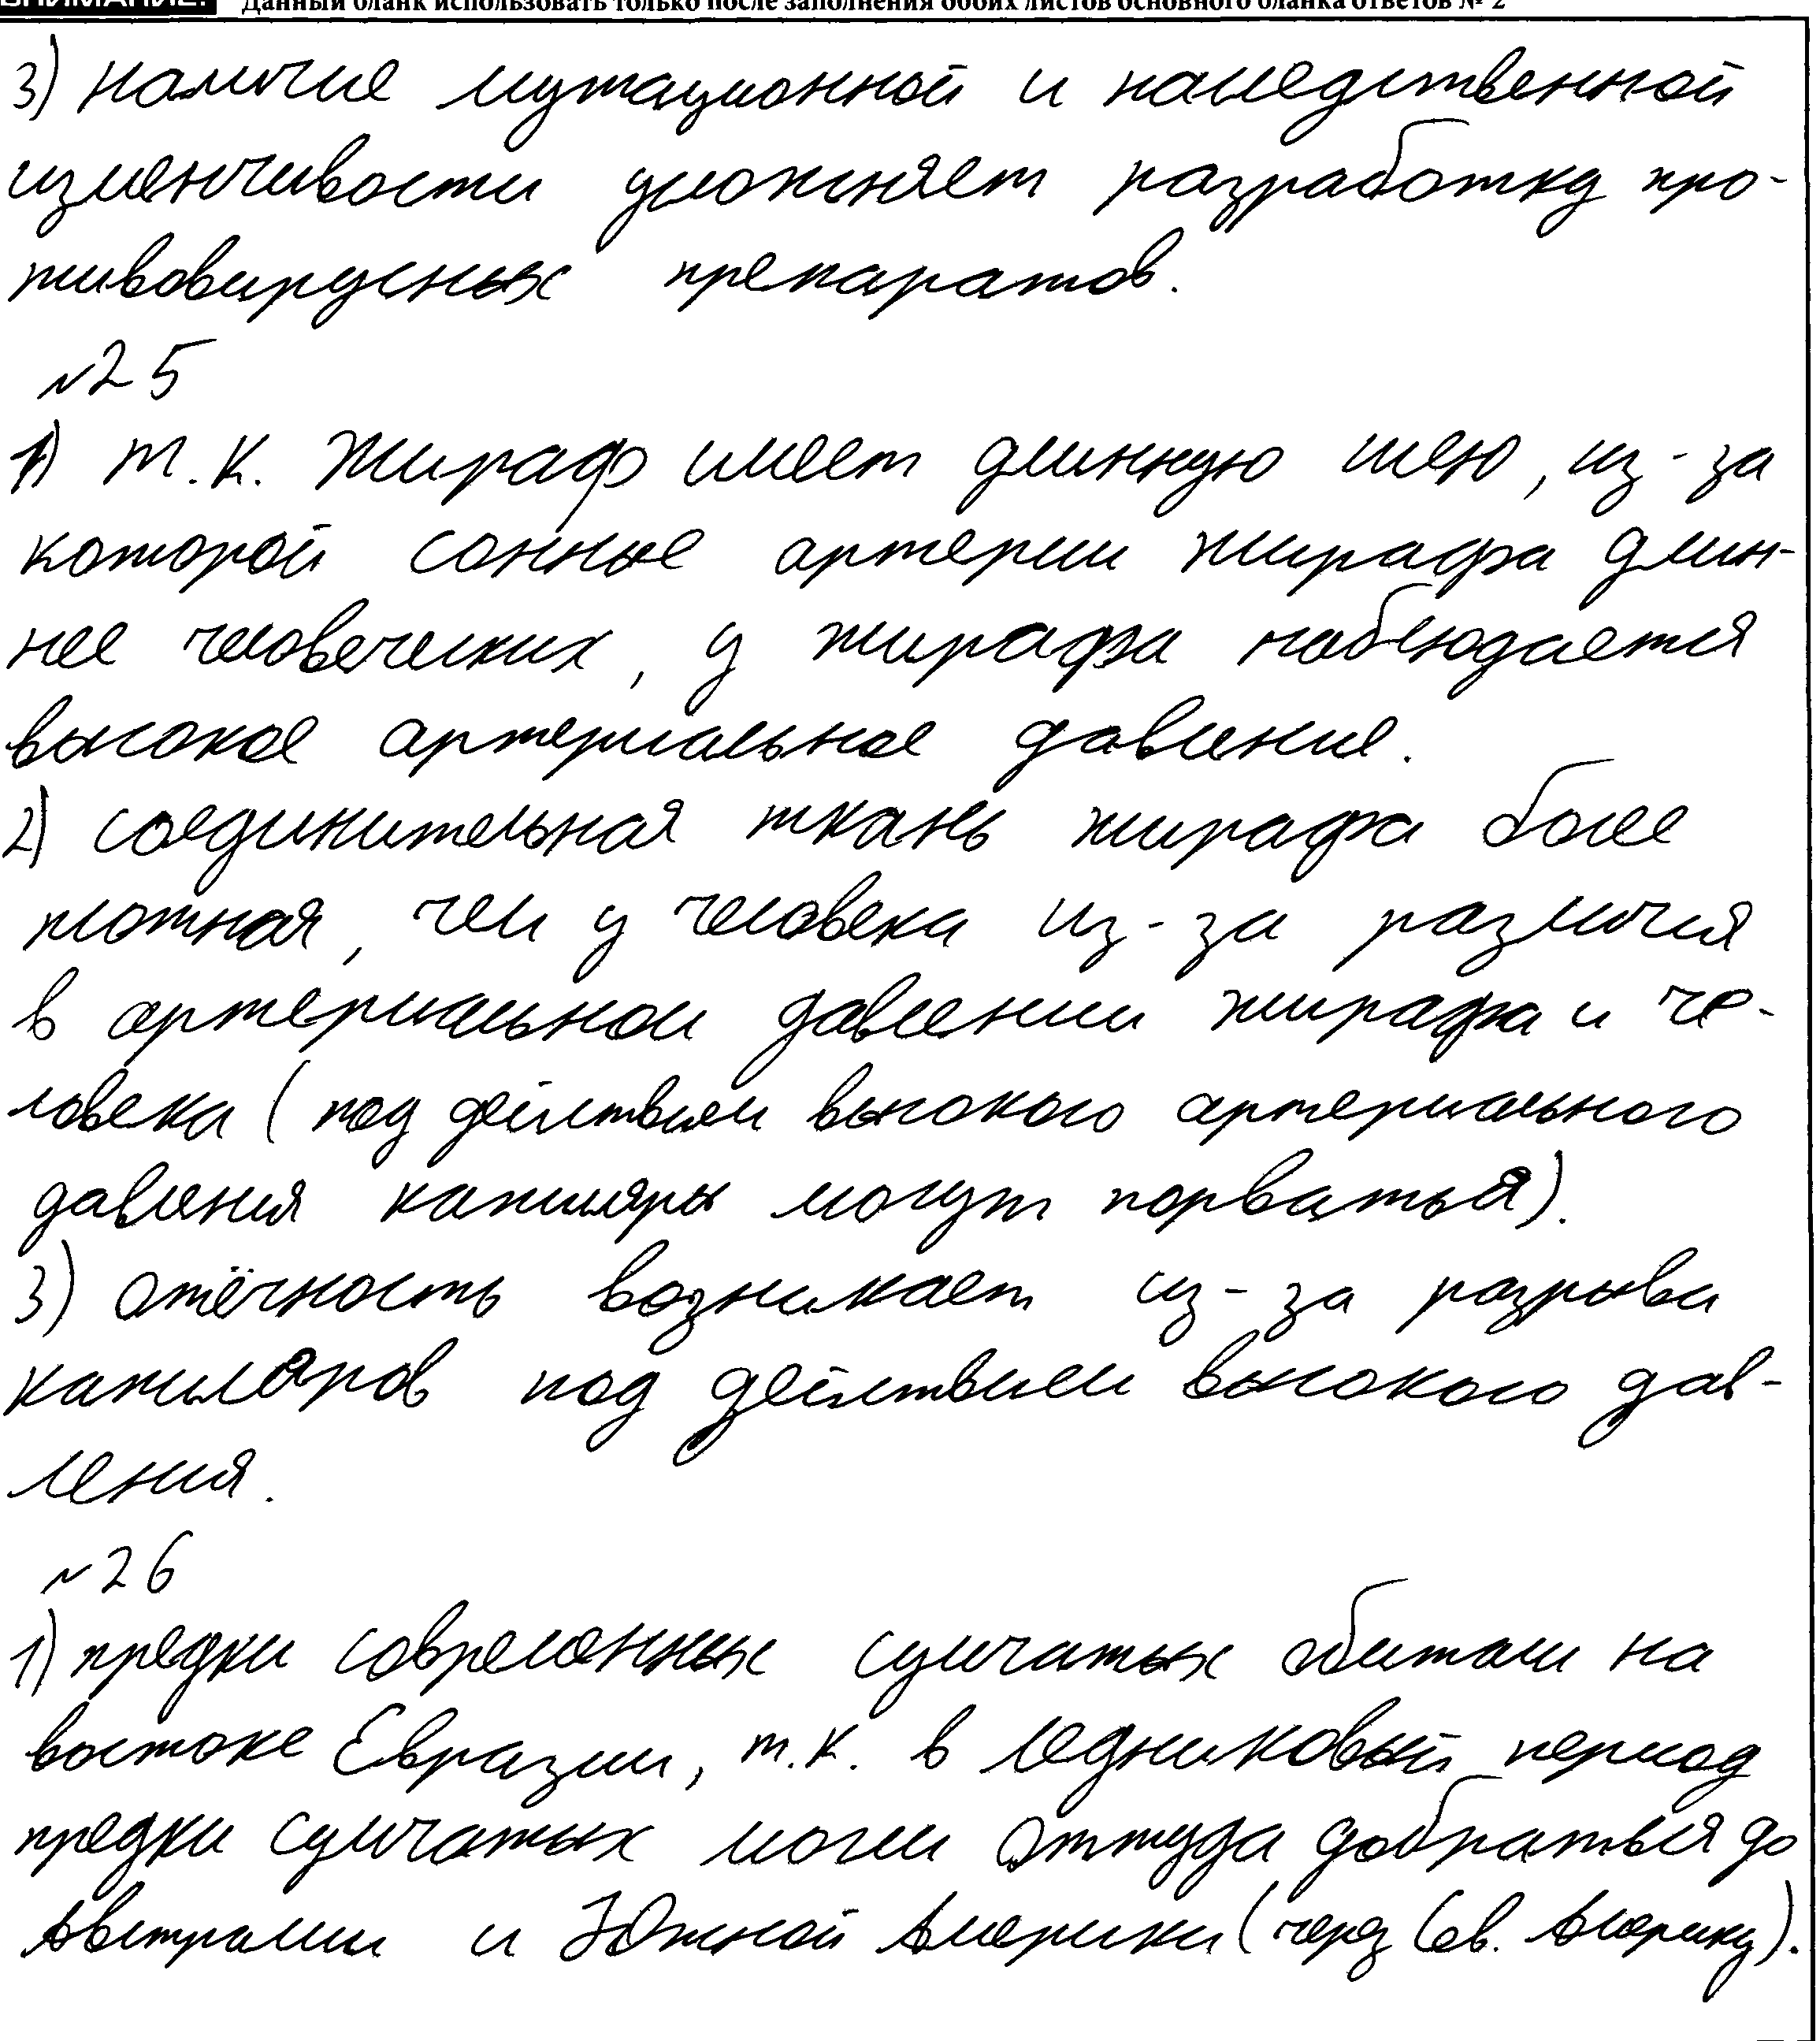 ВНИМАНИЕ! Данный бланк использовать только после заполнения обоих листов основного бланка ответов № 2
3) наличие мутационной и наследственной
изменчивости усложняет разработку про-
тивовирусных препаратов.
№25
1) т.к. жираф имеет длинную шею, из-за
которой сонные артерии жирафа длин-
нее человеческих, у жирафа наблюдается
высокое артериальное давление.
2) соединительная ткань жирафа более
плотная, чем у человека из-за различия
в артериальном давлении жирафа и че-
ловека (под действием высокого артериального
давления капилляры могут порваться).
3) отёчность возникает из-за разрыва
капиляров под действием высокого дав-
ления.
№26
1) предки современных сумчатых обитали на
востоке Евразии, т.к. в ледниковый период
предки сумчатых могли оттуда добраться до
Австралии и Южной Америки (через Сев. Америку).